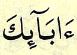 ءَابَآئِكَ